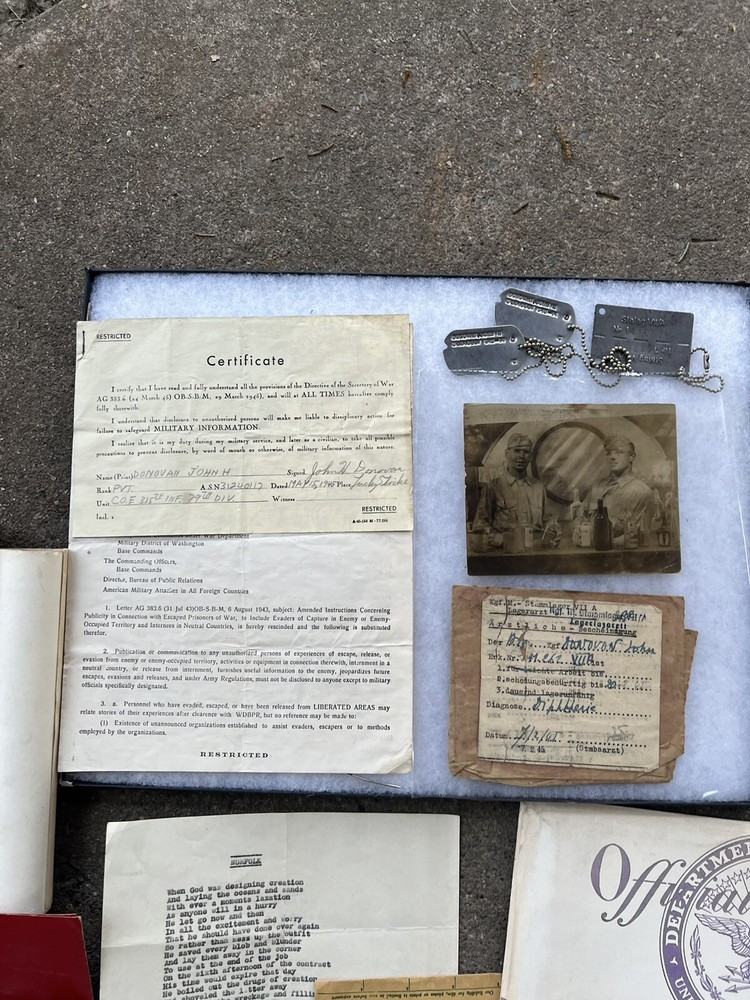 RESTRICTED
Certificate
I certify that I have read and fully understand all the provisions of the Directive of the Secretary of War
AG 383.6 (24 March 45) OB-S-B-M, 29 March 1945), and will at ALL TIMES hereafter comply
fully therewith.
I understand that disclosure to unauthorized persons will make me liable to disciplinary action for
failure to safeguard MILITARY INFORMATION.
I realize that it is my duty during my military service, and later as a civilian, to take all possible
precautions to prevent disclosure, by word of mouth or otherwise, of military information of this nature.
Name (Print) DONOVAN JOHN H Signed John H Donovan
Rank PVT. ASN 31240117 Dated MAY 15, 1945 Place
Unit CO.E 315th INF 79th DIV. Witness
Incl. 2
RESTRICTED
Military District of Washington
Base Commands
The Commanding Officers,
Base Commands
Director, Bureau of Public Relations
American Military Attaches in All Foreign Countries
1. Letter AG 383.6 (31 Jul 43)OB-S-B-M, 6 August 1943, subject: Amended Instructions Concerning
Publicity in Connection with Escaped Prisoners of War, to Include Evaders of Capture in Enemy or Enemy-
Occupied Territory and Internees in Neutral Countries, is hereby rescinded and the following is substituted
therefor.
2. Publication or communication to any unauthorized persons of experiences of escape, release, or
evasion from enemy or enemy-occupied territory, activities or equipment in connection therewith, internment in a
neutral country, or release from internment, furnishes useful information to the enemy, jeopardizes future
escapes, evasions and releases, and under Army Regulations, must not be disclosed to anyone except to military
officials specifically designated.
3. a. Personnel who have evaded, escaped, or have been released from LIBERATED AREAS may
relate stories of their experiences after clearance with WDBPR, but no reference may be made to:
(1) Existence of unannounced organizations established to assist evaders, escapers or to methods
employed by the organizations.
RESTRICTED
Stalag VII A
Kgf.M.-Stammlager VII A
Lagerarzt
Ärztliche Bescheinigung
Der Kgf. Donovan John
Erk.Nr.
1. für leichte Arbeit bis
2. schonungsbedürftig bis
3. dauernd lagerunfähig
Diagnose: Diphtherie
Datum
(Stabsarzt)
NORFOLK
When God was designing creation
And laying the oceans and sands
With ever a moments laxation
As anyone will in a hurry
He let go now and then
In all the excitement and worry
That he should have done over again
So rather than mess up the outfit
He saved every blob and blunder
And lay them away in the corner
To use at the end of the job
On the sixth afternoon of the contract
His time would expire that day
He boiled out the dregs of creation
Off
DEPARTME